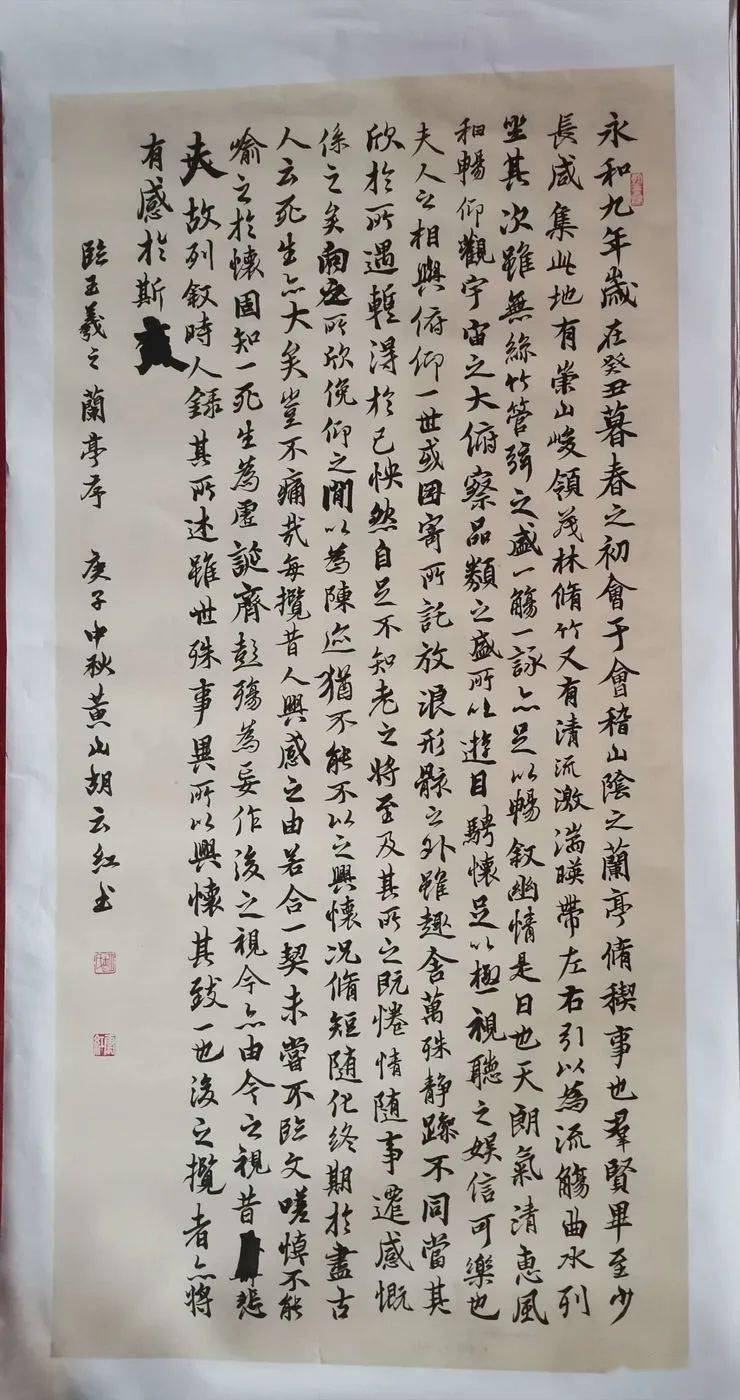 永和九年歲在癸丑暮春之初會于會稽山陰之蘭亭脩稧事也羣賢畢至少
長咸集此地有崇山峻領茂林脩竹又有清流激湍暎帶左右引以為流觴曲水列
坐其次雖無絲竹管弦之盛一觴一詠亦足以暢敘幽情是日也天朗氣清惠風
和暢仰觀宇宙之大俯察品類之盛所以遊目騁懷足以極視聽之娛信可樂也
夫人之相與俯仰一世或因寄所託放浪形骸之外雖趣舍萬殊靜躁不同當其
欣於所遇暫得於己怏然自足不知老之將至及其所之既惓情隨事遷感慨
係之矣向之所欣俛仰之間以為陳迹猶不能不以之興懷況脩短隨化終期於盡古
人云死生亦大矣豈不痛哉每攬昔人興感之由若合一契未嘗不臨文嗟悼不能
喻之於懷固知一死生為虛誕齊彭殤為妄作後之視今亦由今之視昔悲
夫故列敘時人錄其所述雖世殊事異所以興懷其致一也後之攬者亦將
有感於斯文
臨王羲之蘭亭序 庚子中秋黃山胡云红书